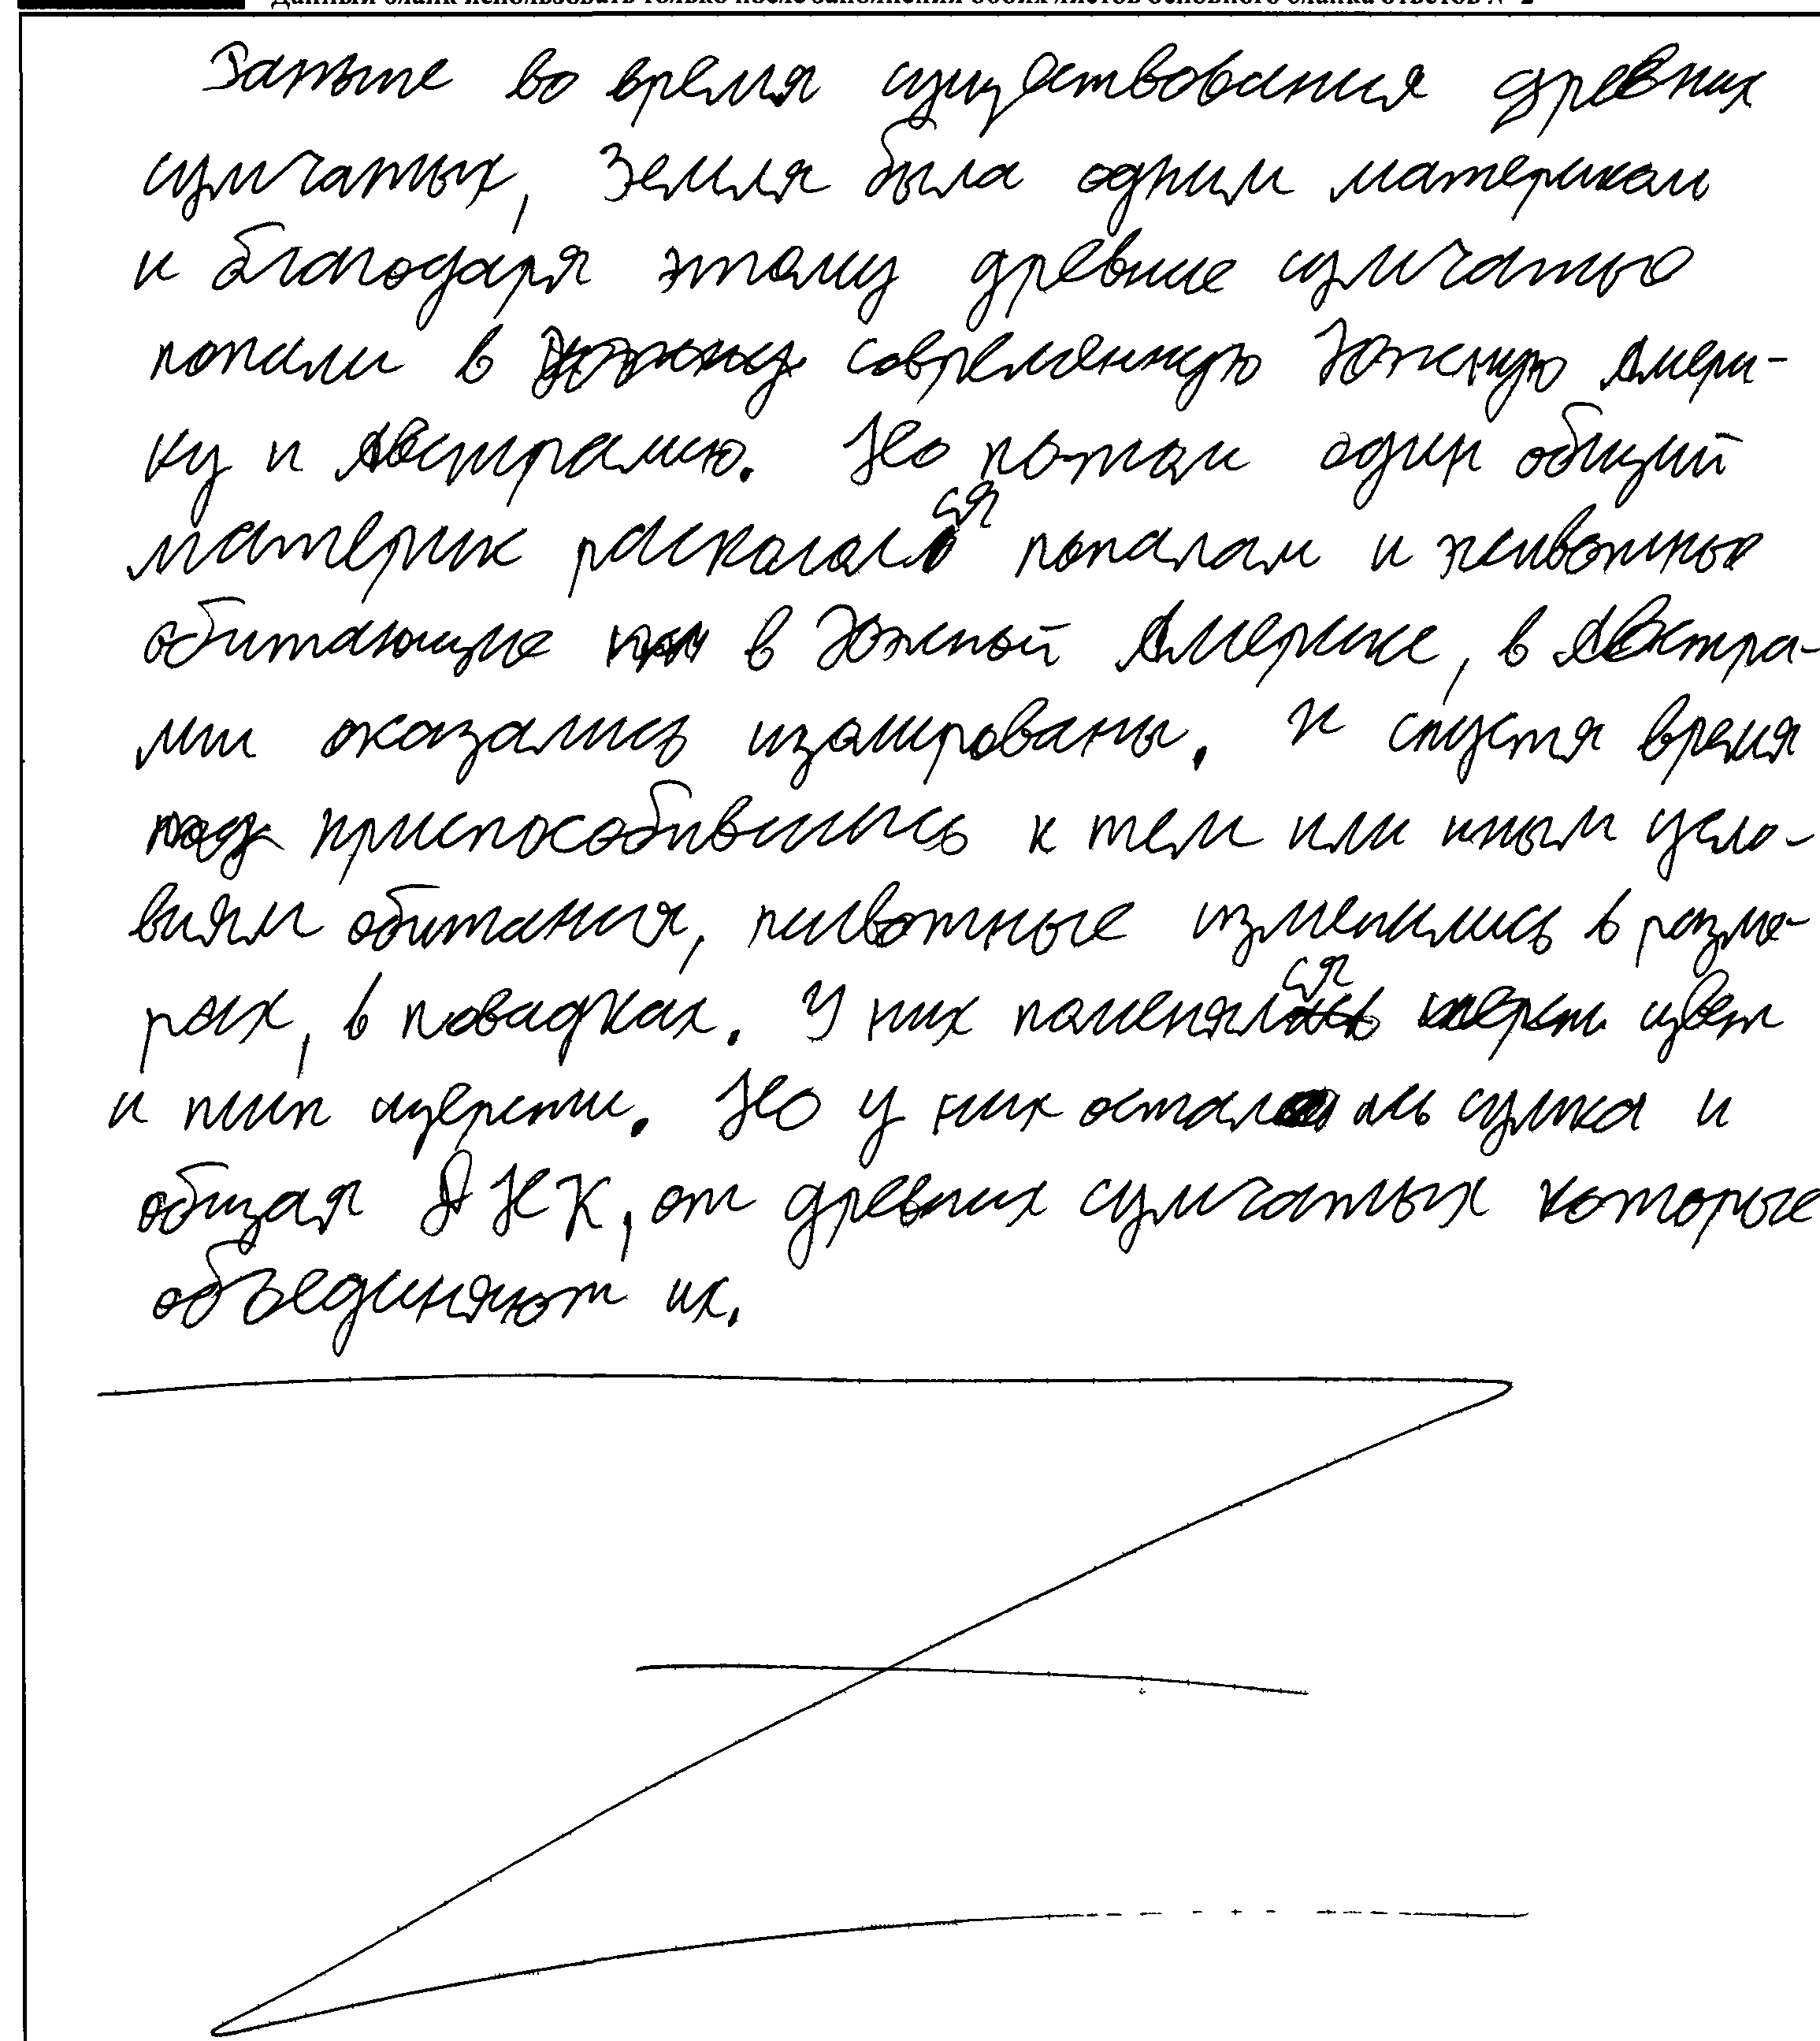 Данный бланк использовать только после заполнения обоих листов основного бланка ответов № 2
во время существования древних
сумчатых, Земля была одним материком
и благодаря этому древние сумчатые
попали в современную Южную Амери-
ку и Австралию. Но потом один общий
материк раскололся пополам и животные
обитающие в Южной Америке, в Австра-
лии оказались изолированы. И спустя время
приспособившись к тем или иным усло-
виям обитания, животные изменились в разме-
рах, в повадках. У них поменялся цвет
и тип шерсти. Но у них остались сумка и
общая ДНК, от древних сумчатых которые
объединяют их.